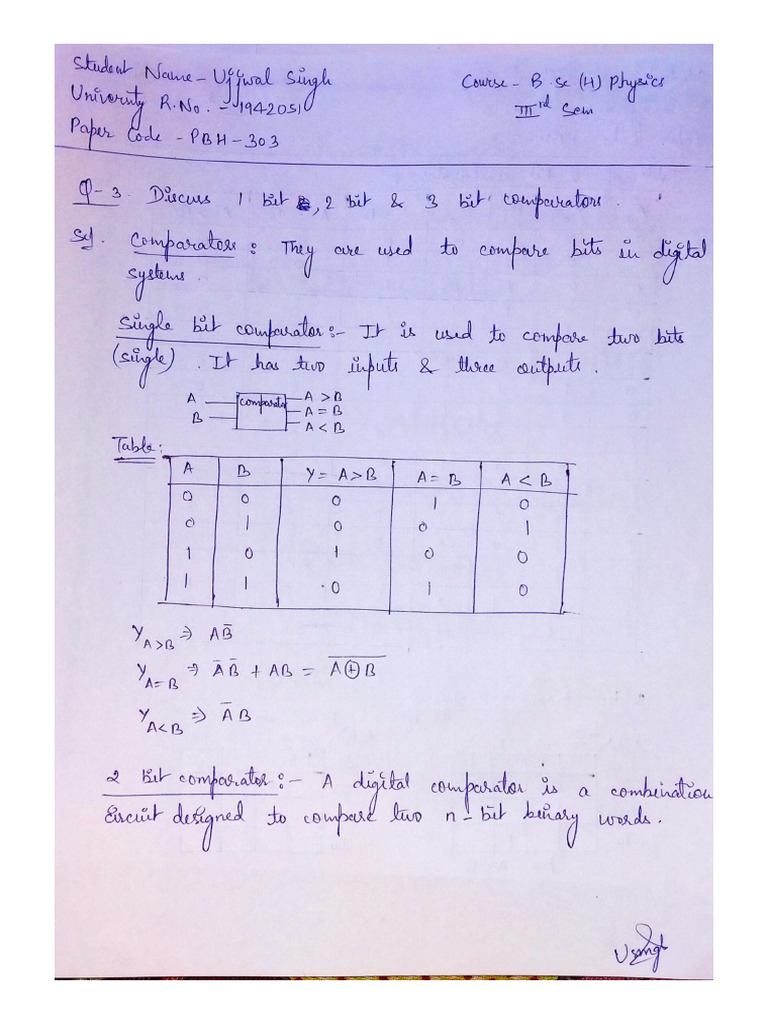 Student Name - Ujjwal Singh
Course - B.Sc (H) Physics
University R.No. - 1942051
IIIrd Sem
Paper Code - PBH-303
Q-3. Discuss 1 bit, 2 bit & 3 bit comparators.
Comparators: They are used to compare bits in digital
systems.
Single bit comparator:- It is used to compare two bits
(single). It has two inputs & three outputs.
A comparator A > B
B A = B
A < B
Table:
A B Y= A>B A= B A < B
0 0 0 1 0
0 1 0 0 1
1 0 1 0 0
1 1 0 1 0
Y_A>B ⇒ AB̄
Y_A=B ⇒ ĀB̄ + AB = \overline{A⊕B}
Y_A<B ⇒ ĀB
2 bit comparator:- A digital comparator is a combination
circuit designed to compare two n-bit binary words.